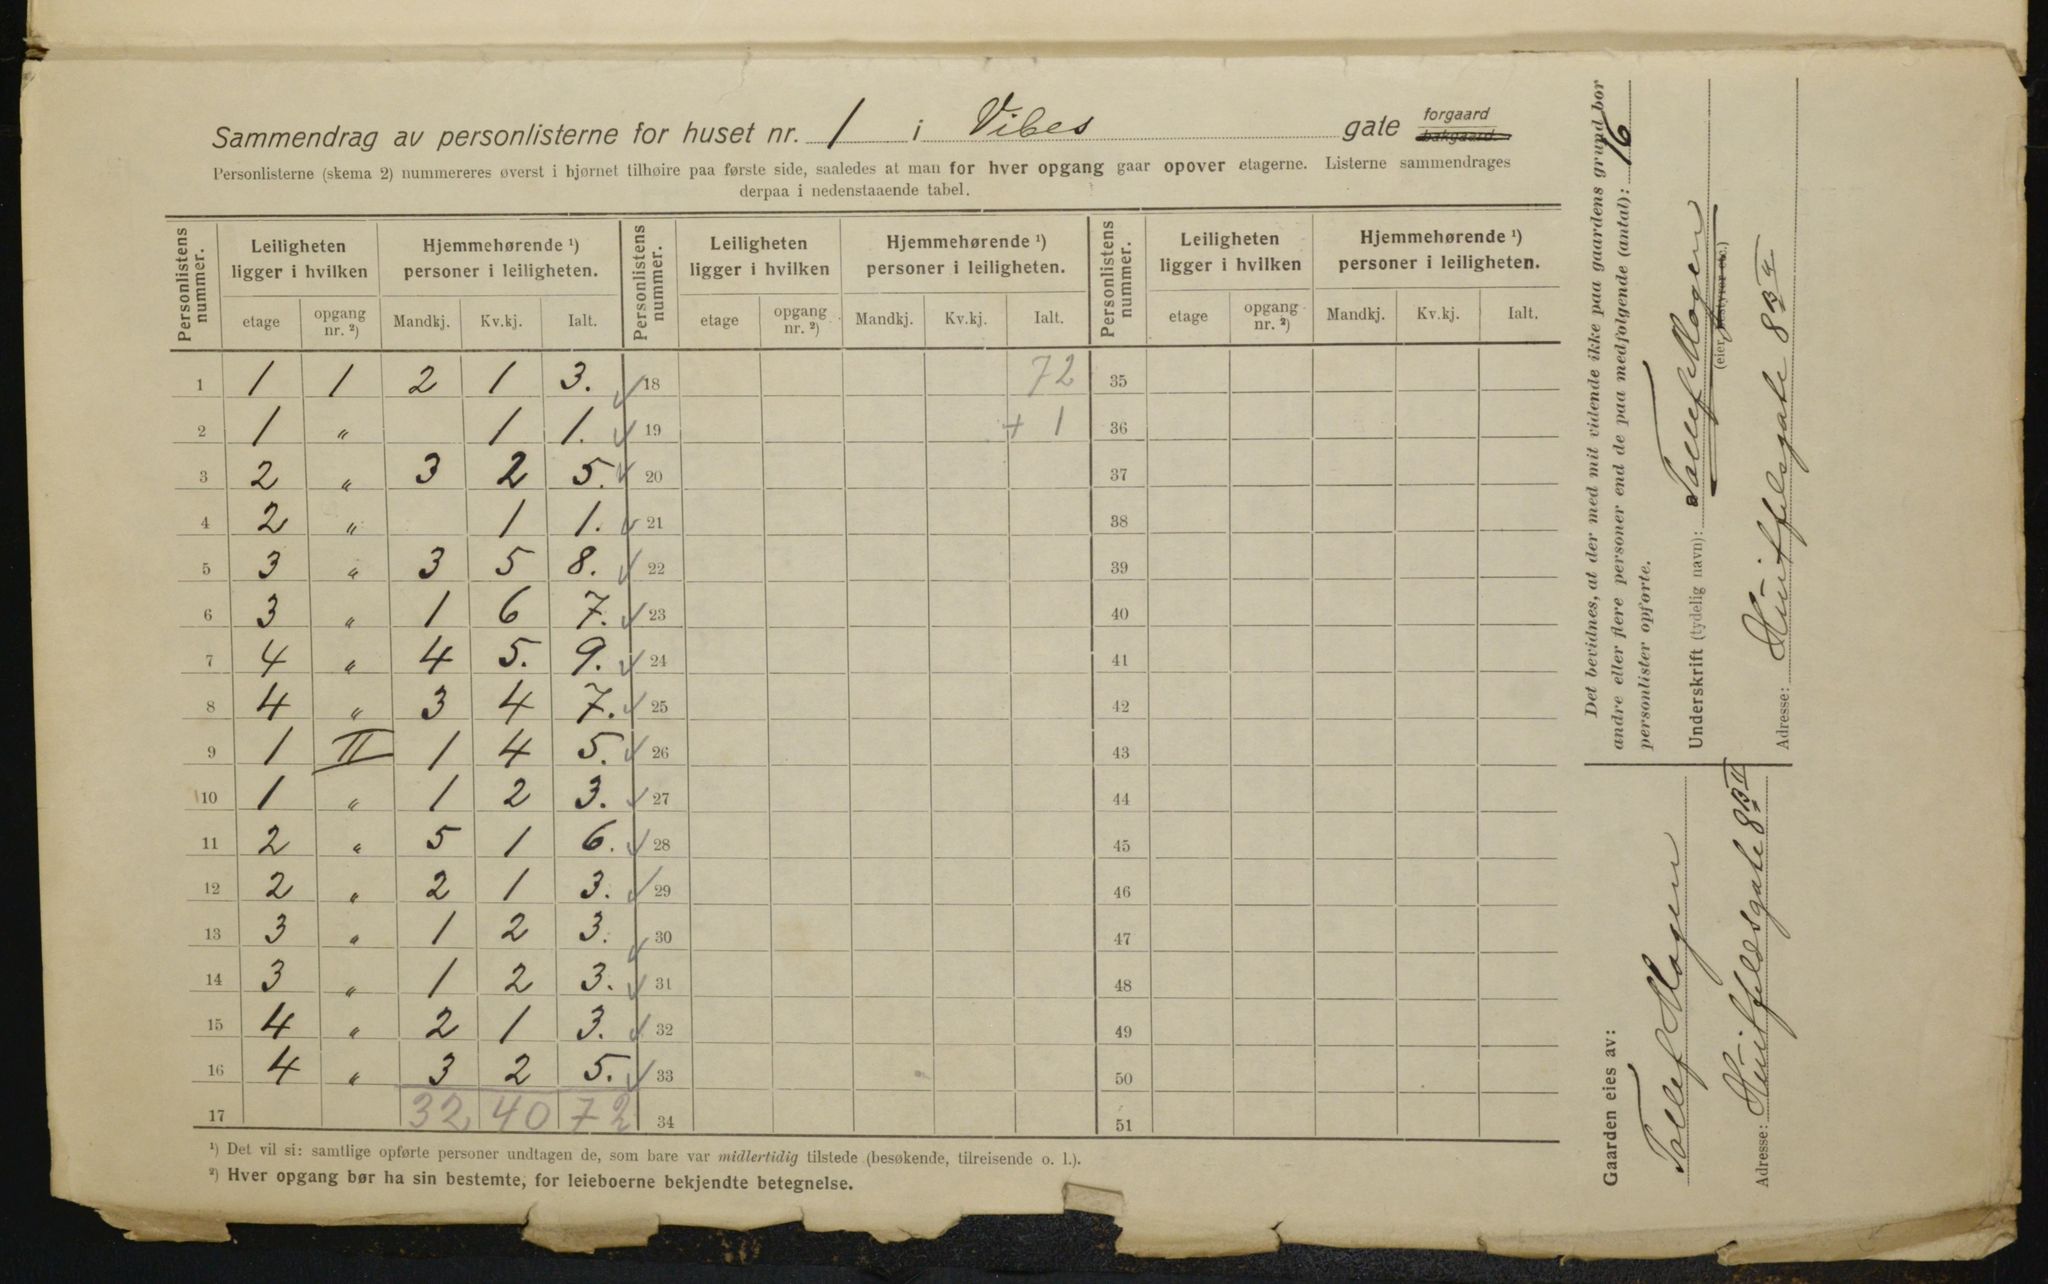 Sammendrag av personlisterne for huset nr. 1 i Vibes gate forgaard bakgaard.
Personlisterne (skema 2) nummereres øverst i hjørnet tilhøire paa første side, saaledes at man for hver opgang gaar opover etagerne. Listerne sammendrages
derpaa i nedenstaaende tabel.
Personlistens nummer. Leiligheten ligger i hvilken Hjemmehørende ¹) personer i leiligheten. Personlistens nummer. Leiligheten ligger i hvilken Hjemmehørende ¹) personer i leiligheten. Personlistens nummer. Leiligheten ligger i hvilken Hjemmehørende ¹) personer i leiligheten.
etage opgang nr. ²) Mandkj. Kv.kj. Ialt. etage opgang nr. ²) Mandkj. Kv.kj. Ialt. etage opgang nr. ²) Mandkj. Kv.kj. Ialt.
1 1 1 2 1 3. ✓ 18 72 35
2 1 " 1 1. ✓ 19 + 1 36
3 2 " 3 2 5. ✓ 20 37
4 2 " 1 1. ✓ 21 38
5 3 " 3 5 8. ✓ 22 39
6 3 " 1 6 7. ✓ 23 40
7 4 " 4 5. 9. ✓ 24 41
8 4 " 3 4 7. ✓ 25 42
9 1 II 1 4 5. ✓ 26 43
10 1 " 1 2 3. ✓ 27 44
11 2 " 5 1 6. ✓ 28 45
12 2 " 2 1 3. ✓ 29 46
13 3 " 1 2 3. ✓ 30 47
14 3 " 1 2 3. ✓ 31 48
15 4 " 2 1 3. ✓ 32 49
16 4 " 3 2 5. ✓ 33 50
17 32 40 72 34 51
¹) Det vil si: samtlige opførte personer undtagen de, som bare var midlertidig tilstede (besøkende, tilreisende o. l.).
²) Hver opgang bør ha sin bestemte, for leieboerne bekjendte betegnelse.
Det bevidnes, at der med mit vidende ikke paa gaardens grund bor
andre eller flere personer end de paa medfølgende (antal): 16
personlister opførte.
Underskrift (tydelig navn): Tollef Mogen
(eier, bestyrer etc.)
Adresse: Huitfeldsgate 8 B
Gaarden eies av:
Tollef Mogen
Adresse: Huitfeldsgate 8 B